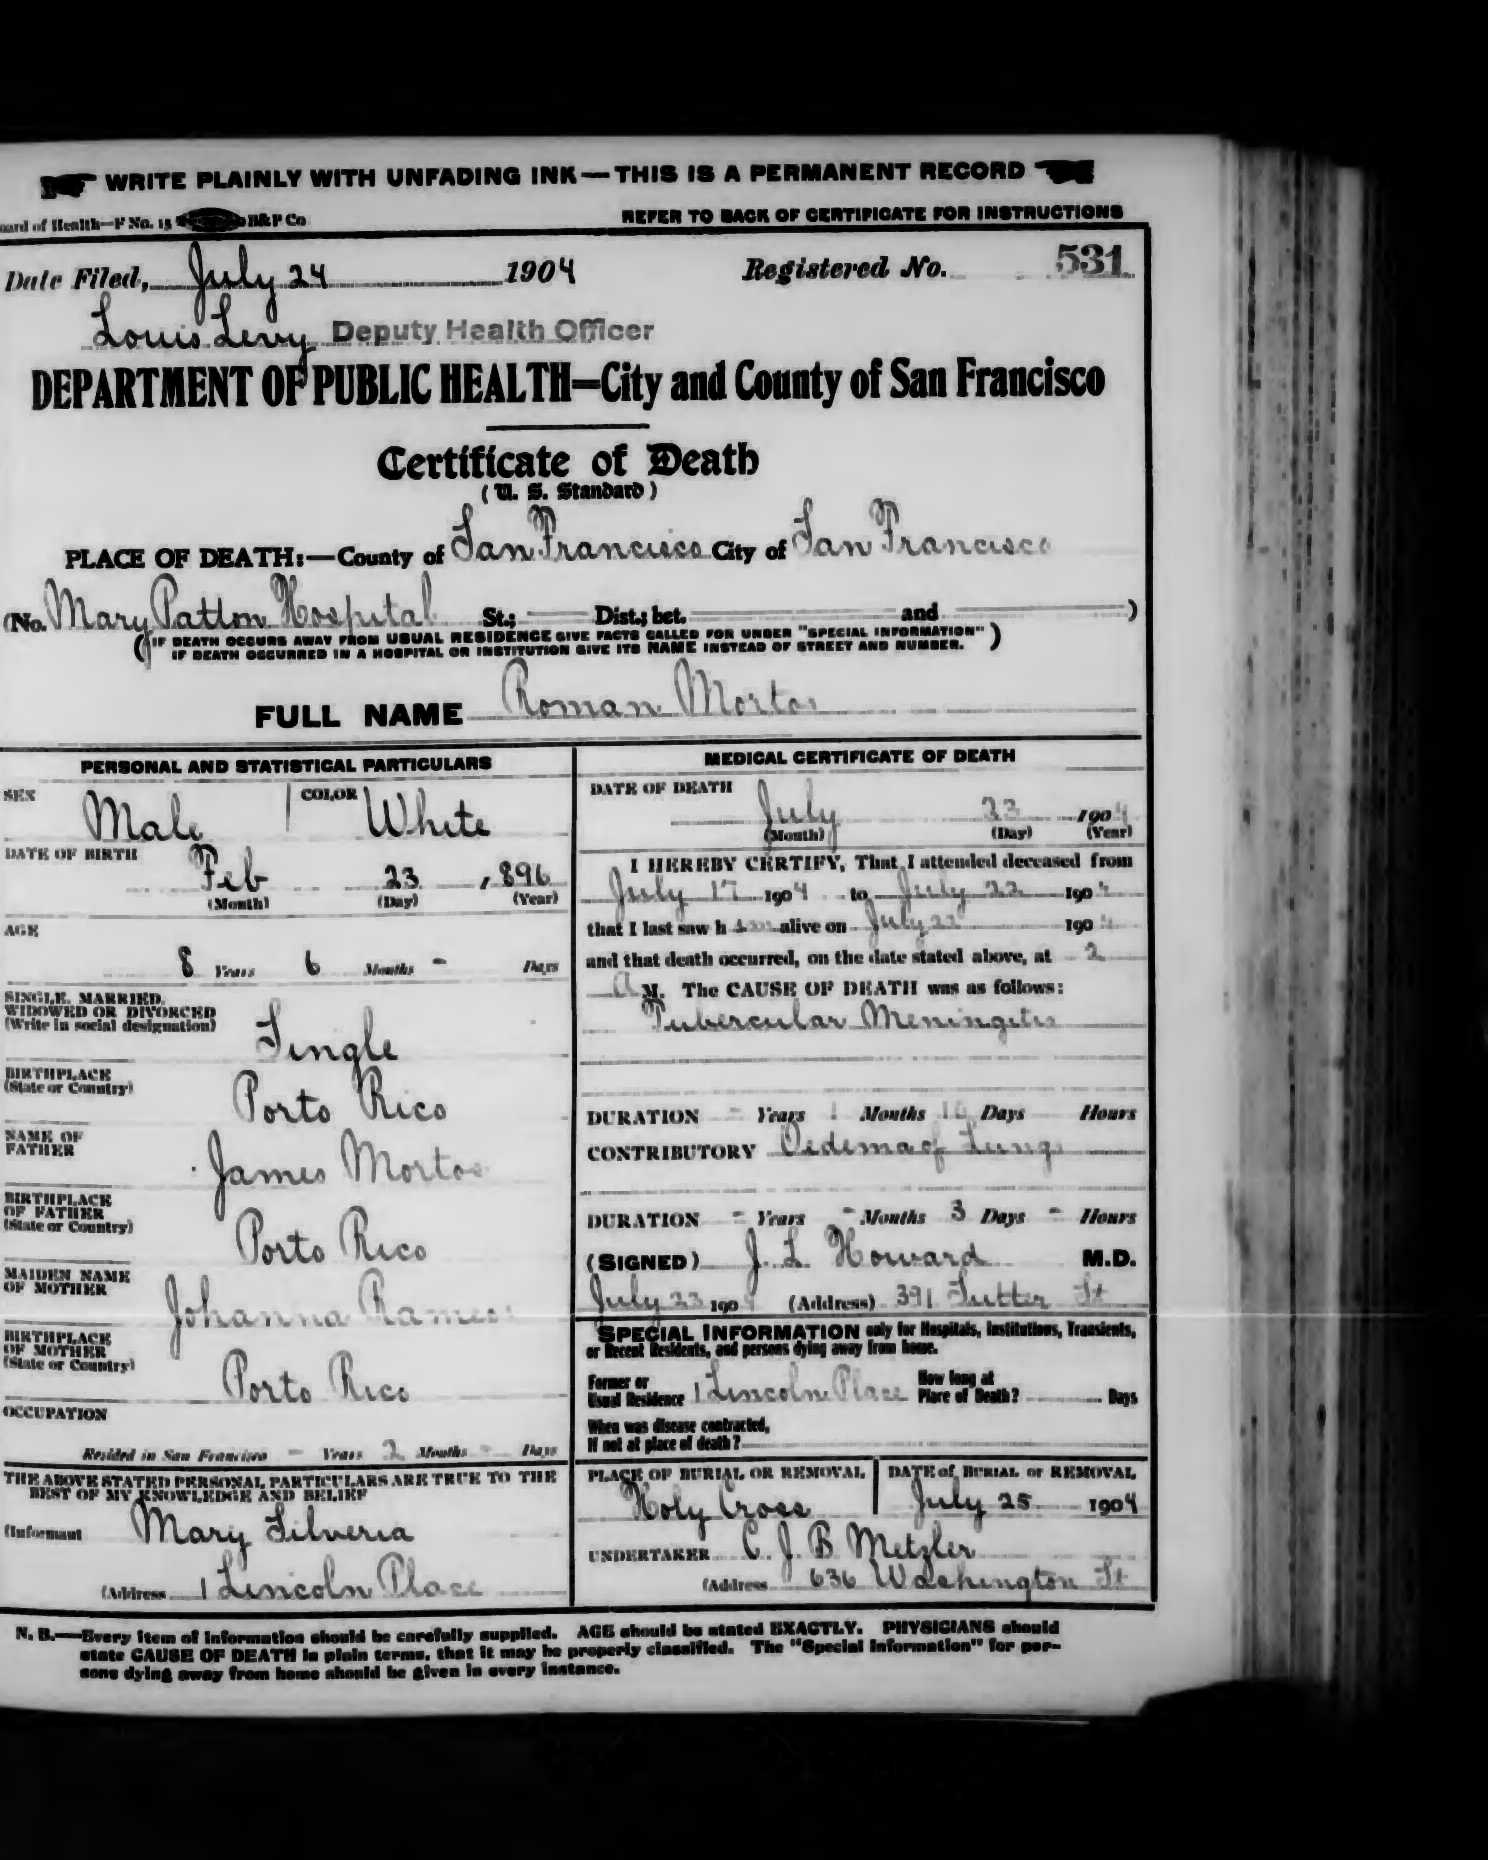 WRITE PLAINLY WITH UNFADING INK—THIS IS A PERMANENT RECORD
oard of Health—F No. 15 B&P Co
REFER TO BACK OF CERTIFICATE FOR INSTRUCTIONS
Date Filed, July 24 1904 Registered No. 531
Louis Levy Deputy Health Officer
DEPARTMENT OF PUBLIC HEALTH—City and County of San Francisco
Certificate of Death
(U. S. Standard)
PLACE OF DEATH:—County of San Francisco City of San Francisco
(No. Mary Patton Hospital St.; Dist.; bet. and )
(IF DEATH OCCURS AWAY FROM USUAL RESIDENCE GIVE FACTS CALLED FOR UNDER "SPECIAL INFORMATION"
IF DEATH OCCURRED IN A HOSPITAL OR INSTITUTION GIVE ITS NAME INSTEAD OF STREET AND NUMBER.)
FULL NAME Roman Mortos
PERSONAL AND STATISTICAL PARTICULARS
SEX Male COLOR White
DATE OF BIRTH
Feb 23 , 896
(Month) (Day) (Year)
AGE
8 Years 6 Months - Days
SINGLE, MARRIED,
WIDOWED OR DIVORCED
(Write in social designation)
Single
BIRTHPLACE
(State or Country)
Porto Rico
NAME OF
FATHER
James Mortos
BIRTHPLACE
OF FATHER
(State or Country)
Porto Rico
MAIDEN NAME
OF MOTHER
Johanna Rameos
BIRTHPLACE
OF MOTHER
(State or Country)
Porto Rico
OCCUPATION
Resided in San Francisco - Years 2 Months - Days
THE ABOVE STATED PERSONAL PARTICULARS ARE TRUE TO THE
BEST OF MY KNOWLEDGE AND BELIEF
(Informant Mary Silveria
(Address 1 Lincoln Place
MEDICAL CERTIFICATE OF DEATH
DATE OF DEATH
July 23 1904
(Month) (Day) (Year)
I HEREBY CERTIFY, That I attended deceased from
July 17 1904 to July 22 1904
that I last saw h im alive on July 22 1904
and that death occurred, on the date stated above, at 2
A M. The CAUSE OF DEATH was as follows:
Tubercular Meningitis
DURATION - Years 1 Months Days Hours
CONTRIBUTORY Oedema of Lungs
DURATION - Years - Months 3 Days - Hours
(SIGNED) J. L. Howard M.D.
July 23 1904 (Address) 391 Sutter St
SPECIAL INFORMATION only for Hospitals, Institutions, Transients,
or Recent Residents, and persons dying away from home.
Former or
Usual Residence 1 Lincoln Place How long at
Place of Death? Days
When was disease contracted,
If not at place of death?
PLACE OF BURIAL OR REMOVAL
Holy Cross
DATE of BURIAL or REMOVAL
July 25 1904
UNDERTAKER C. J. B. Metzler
(Address 636 Washington St
N. B.—Every item of information should be carefully supplied. AGE should be stated EXACTLY. PHYSICIANS should
state CAUSE OF DEATH in plain terms, that it may be properly classified. The "Special Information" for per-
sons dying away from home should be given in every instance.